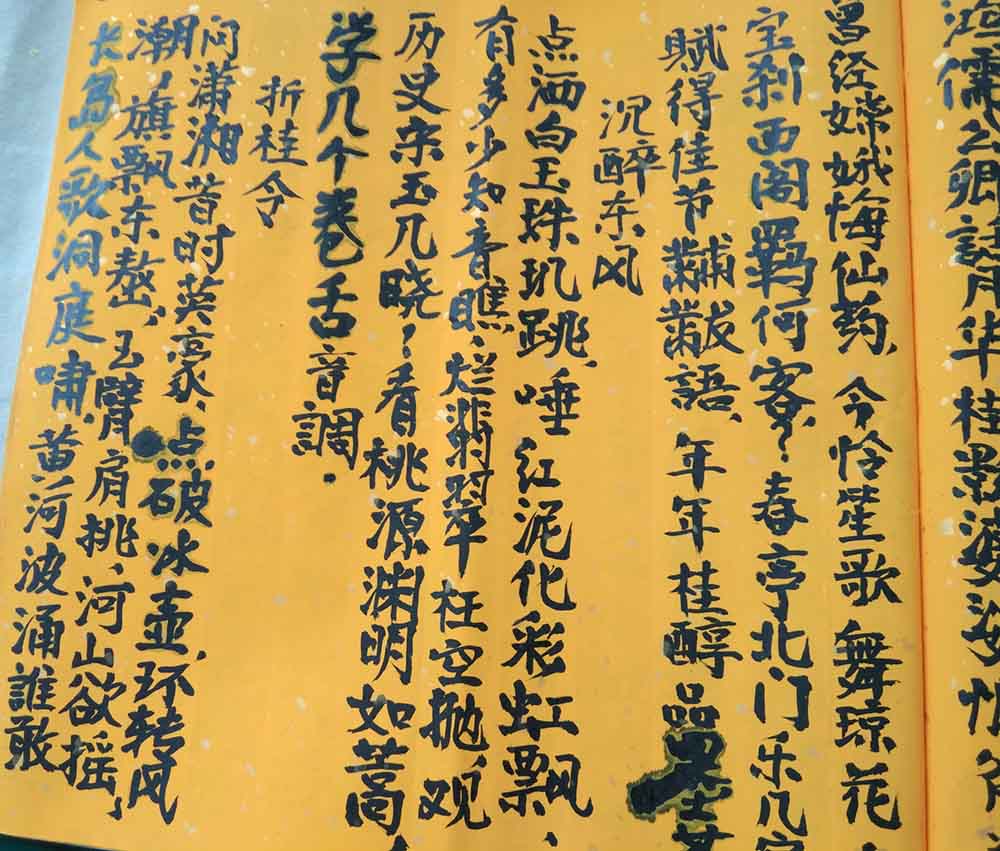 鸿儒公卿話月华桂影婆娑
曾经嫦娥悔仙药,今怜笙歌舞琼花
宝刹西阁羁何客?春亭北门乐几家
賦得佳节黼黻語,年年桂醇品
沉醉东风
点洒白玉珠玑跳,唾红泥化彩虹飘,
有多少知音瞧,烂翡翠枉空抛,观
历史宋玉几晓?看桃源渊明如蒿
学几个卷舌音調.
折桂令
问瀟湘昔时英豪,点破冰壶,环转风
潮,旗飘东嶅,玉臂肩挑,河山欲摇,
长岛人歌洞庭嘯,黄河波涌誰敢